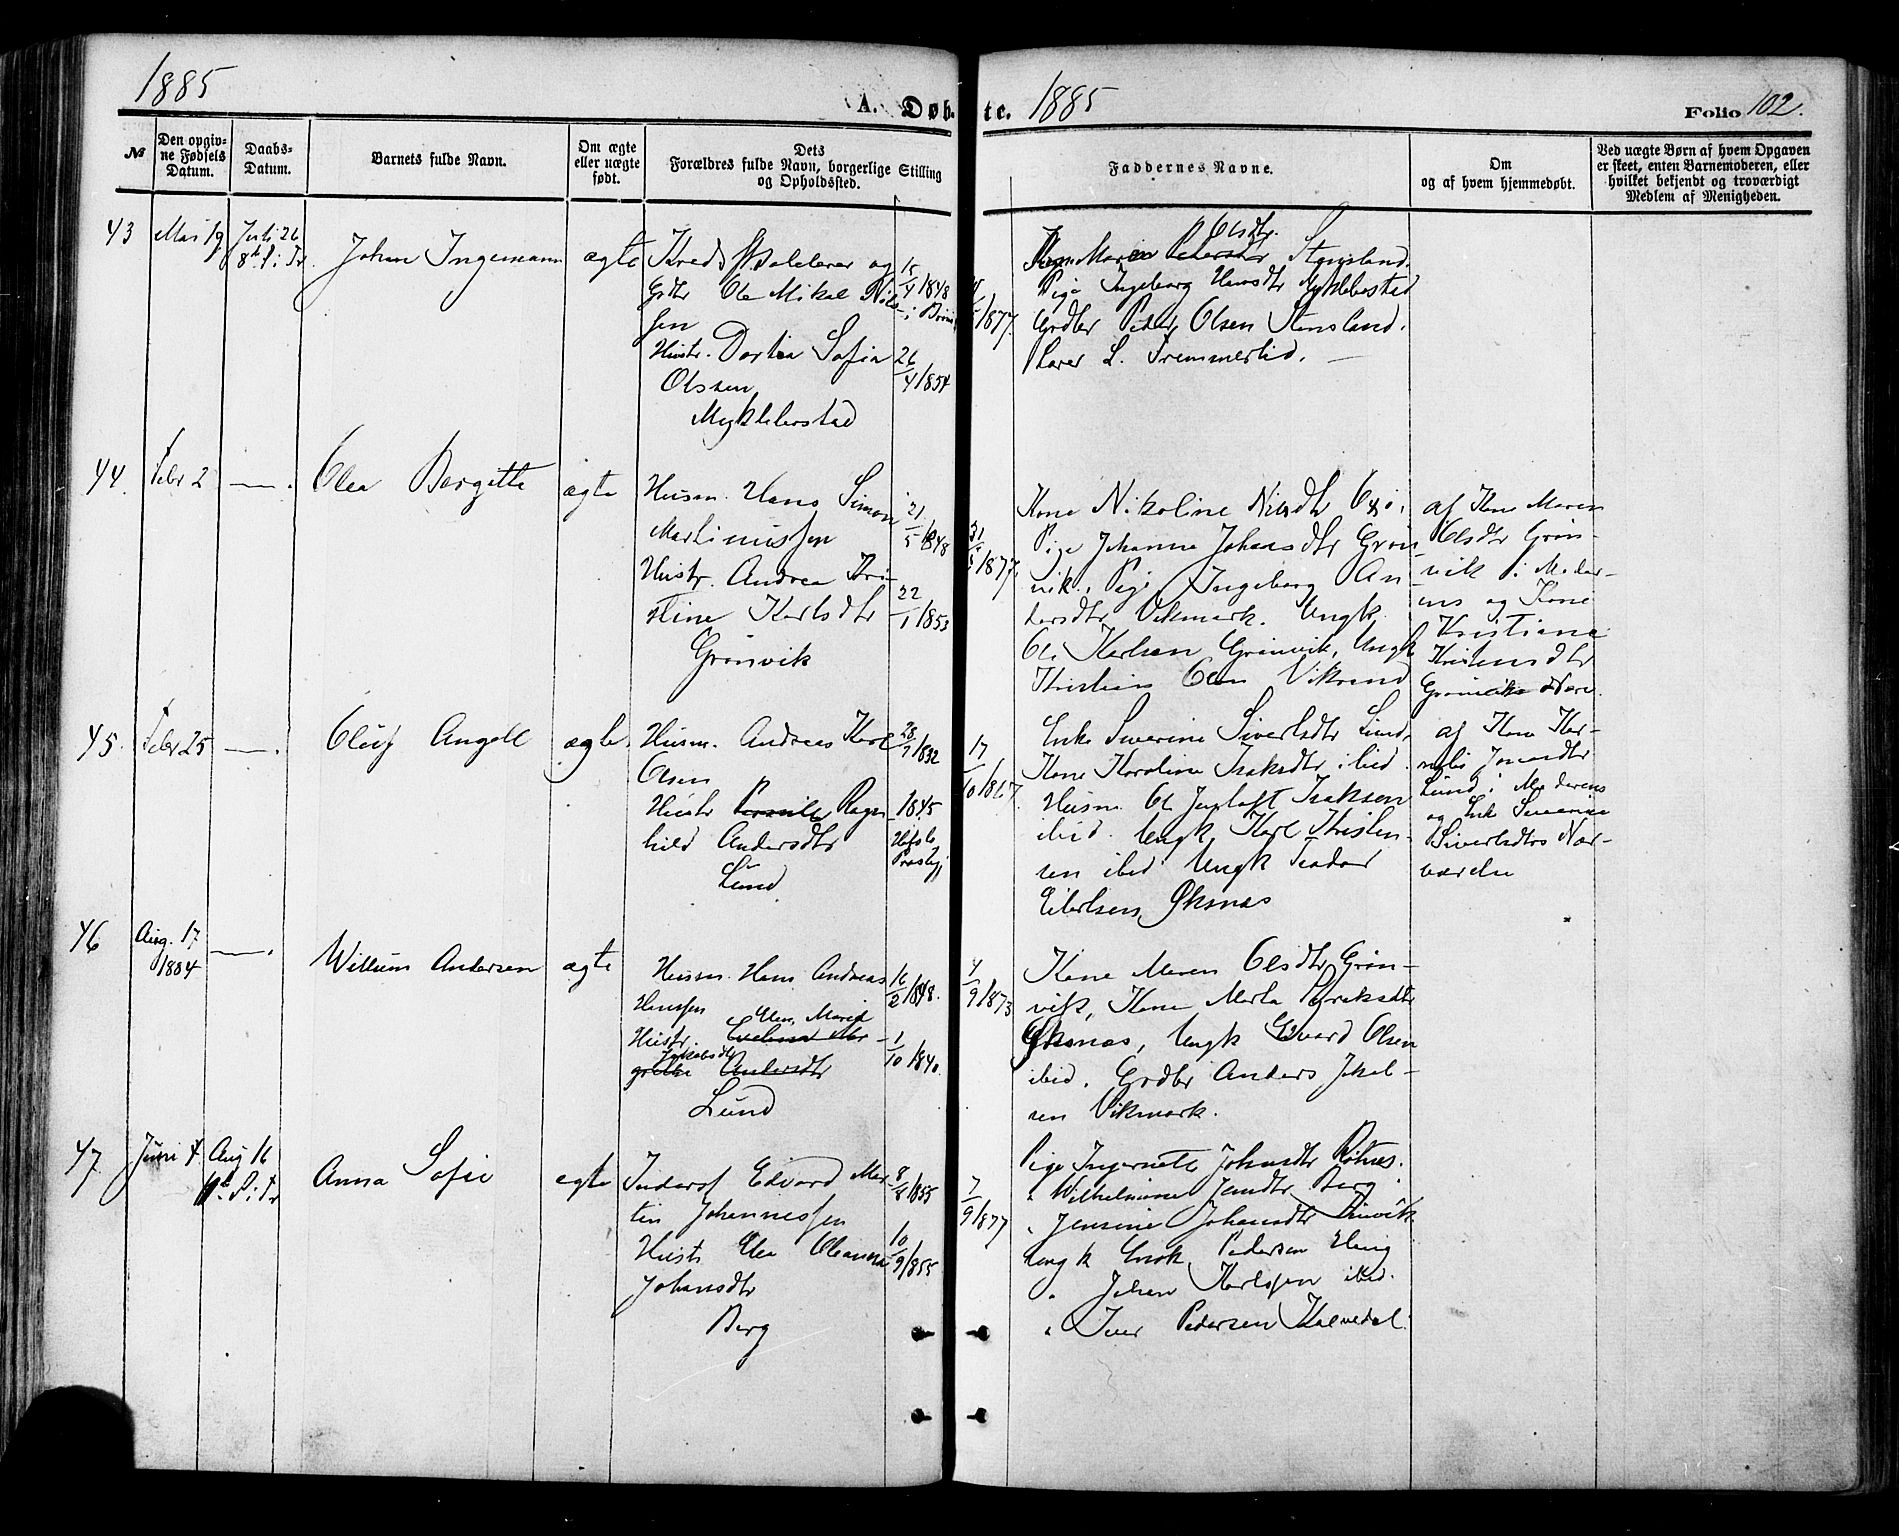 1885
A. Døb-
te.
1885
Folio 102.
№
Den opgiv-
ne Fødsels
Datum.
Daabs-
Datum.
Barnets fulde Navn.
Om ægte
eller uægte
født.
Dets
Forældres fulde Navn, borgerlige Stilling
og Opholdssted.
Faddernes Navne.
Om
og af hvem hjemmedøbt.
Ved uægte Børn af hvem Opgaven
er skeet, enten Barnemoderen, eller
hvilket bekjendt og troværdigt
Medlem af Menigheden.
43
Mai 19
Juli 26
8de S. i Tr.
Johan Ingemann
ægte
Kreds Skolelærer og
Ole Mikal Niels-
sen
Hustr. Dortea Sofia
Olsen
Myklebostad
15/4 1848
26/4 1854
1877
Olsdtr.
Maren Pedersdtr Stensland.
Pige Ingeborg Hansdtr Myklebostad
Grdbr Peder Olsen Stensland.
Lærer L. Tremmerlid. —
44.
Febr 2
—.
Olea Bergitta
ægte
Husm. Hans Simon
Martinussen
Hustr. Andrea Kri-
stine Karlsdtr
Grønvik
21/5 1848
22/1 1853
1877.
Kone Nikoline
Pige Johanna Johansdtr Grøn-
vik. Pige Ingeborg An-
dersdtr Vikmark. Ungk.
Ole Karlsen Grønvik, Ungk
Kristian Olsen Vikrend
af Kone Maren
Olsdtr Grøn-
vik i Moder-
ens og Kone
Kristiane
Kristensdtr
Grønviks Nærv.
45.
Febr 25
—.
Oluf Angell
ægte.
Husm. Andreas Karl
Olsen
Hustr Pernille Ragn
hild Andersdtr
Lund
28/7 1832
1845
17/10 1867.
Enke Severine Sivertsdtr Lund,
Kone Karoline Isaksdtr ibid.
Husm. Ol Jentoft Isaksen
ibid. Ungk. Karl Kristen-
sen ibid Ungk Teodor
Eilertsen, Øksnæs
af Kone Kor-
nelia
Lund i Moderens
og Enk Severine
Sivertsdtrs Nær-
værelse
46
Aug. 17
1884
—.
Willum Andersen
ægte
Husm. Hans Andreas
Hanssen
Elen Maria
Hustr.
Jakobsdtr
grethe Andersdtr
Lund
16/2 1848.
1/10 1840.
4/9 1873
Kone Maren Olsdtr Grøn-
vik, Kone Marta Isaksdtr
Øksnæs, Ungk Edvard Olsen
ibid. Grdbr Anders Jakob-
sen Vikmark.
47
Juni 4.
Aug 16
11te S. i Tr
Anna Sofie
ægte
Inderst Edvard Mar
tin Johannessen
Hustr Elea Oleanna
Johansdtr
Berg
1855
10/9 1855
7/9 1877
Pige Ingernette Johansdtr
" Wilhelmine Jensdtr Berg.
" Jensine Johansdtr
Ungk Enok Pedersen
" Johan Karlssen ibid.
" Iver Pedersen Kalvedal.